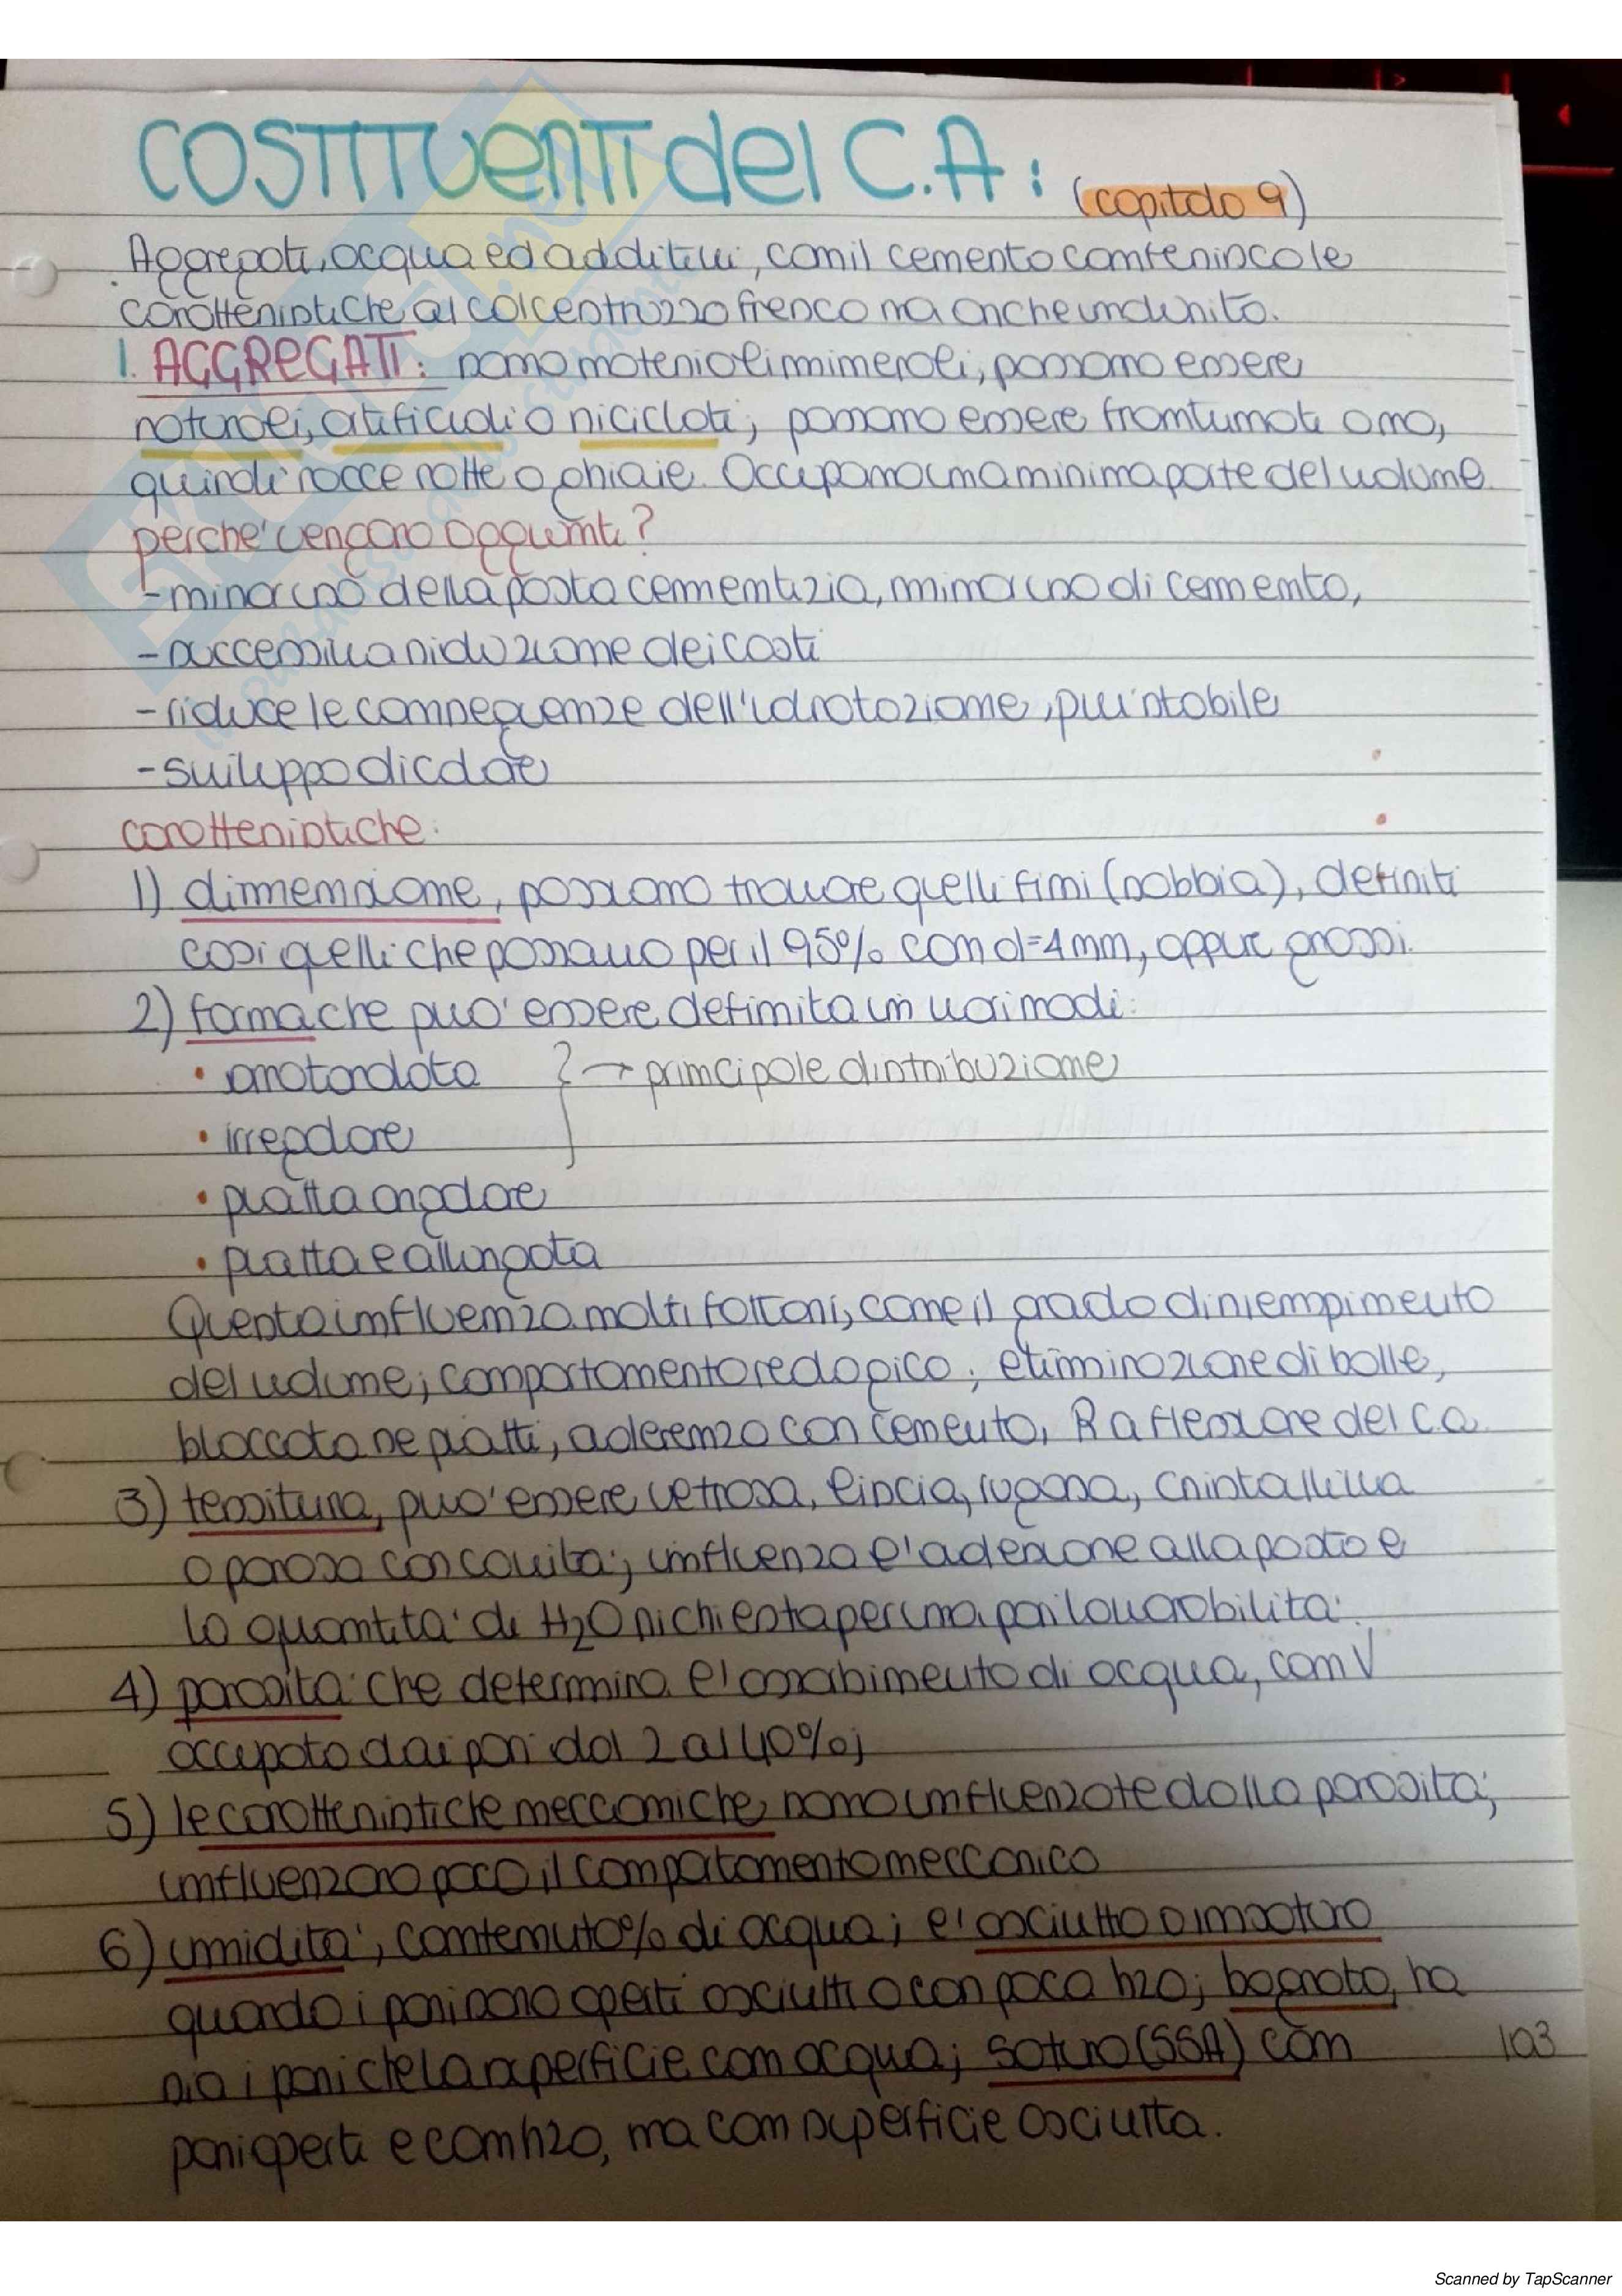 COSTITUENTI del C.A: (capitolo 9)
Aggregati, acqua ed additivi, con il cemento conferiscole
caratteristiche al calcestruzzo fresco ma anche indurito.
1. AGGREGATI: sono materiali minerali; possono essere
naturali, artificiali o riciclati; possono essere frantumati o no,
quindi rocce rotte o ghiaie. Occupano una minima parte del volume.
perche' vengono aggiunti?
- minor uso della pasta cementizia, minor uso di cemento,
- successiva riduzione dei costi
- riduce le conseguenze dell'idratazione, piu' stabile
- sviluppo di calore
caratteristiche:
1) dimensione, possiamo trovare quelli fini (sabbia), definiti
cosi quelli che passano per il 95% con d=4mm, oppure grossi.
2) forma che puo' essere definita in vari modi:
• arrotondata } → principale distribuzione
• irregolare
• piatta angolare
• piatta e allungata
Questo influenza molti fattori, come il grado di riempimento
del volume; comportamento reologico; eliminazione di bolle,
bloccata se piatti, aderenza con cemento, R a flessione del c.a.
3) tessitura, puo' essere vetrosa, liscia, rugosa, cristallina
o porosa con cavita'; influenza l'adesione alla pasta e
la quantita' di H2O richiesta per una pari lavorabilita'.
4) porosita' che determina l'assorbimento di acqua, con V
occupato dai pori dal 2 al 40%;
5) le caratteristiche meccaniche sono influenzate dalla porosita';
influenzano poco il comportamento meccanico
6) umidita', contenuto % di acqua; e' asciutto o insaturo
quando i pori sono aperti asciutti o con poca h2o; bagnato, ha
sia i pori che la superficie con acqua; saturo (SSA) con
pori aperti e con h2o, ma con superficie asciutta.
103
Scanned by TapScanner